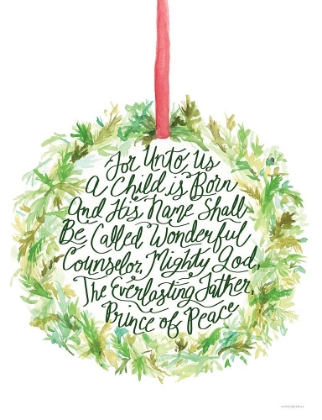 For Unto Us
A Child is Born
And His Name Shall
Be Called Wonderful
Counselor, Mighty God,
The Everlasting Father
Prince of Peace